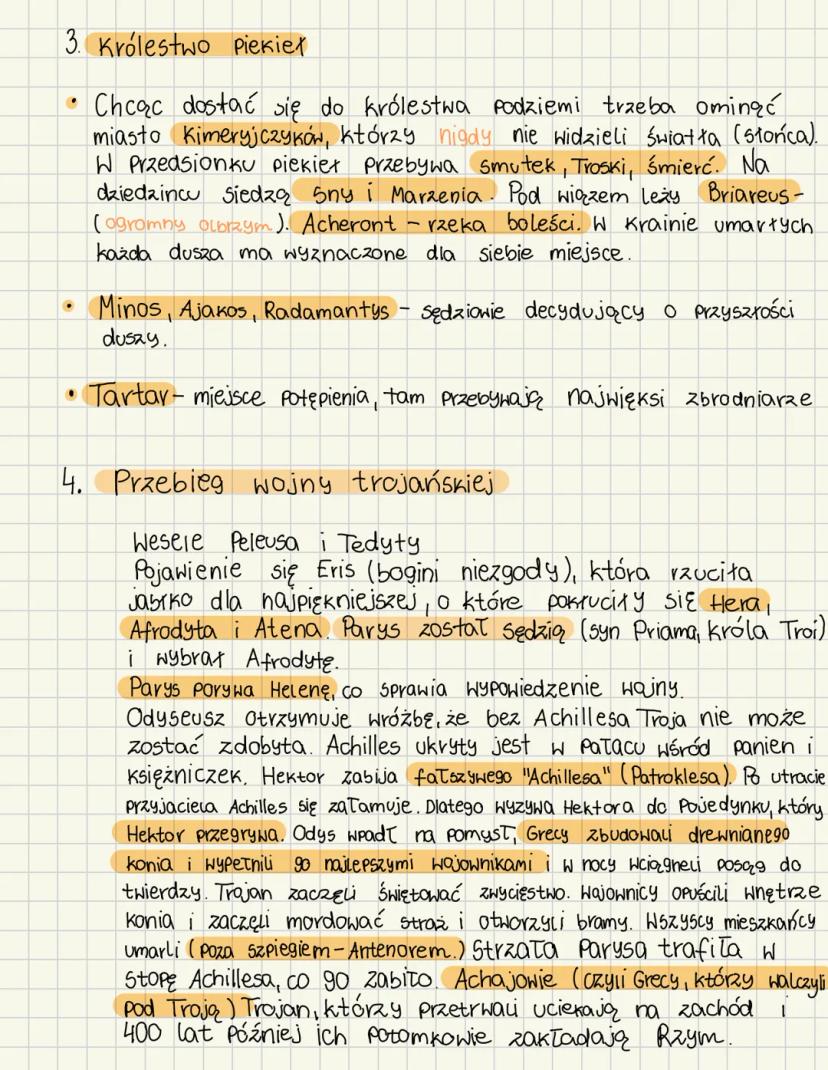 3. Królestwo piekieł
• Chcąc dostać się do królestwa podziemi trzeba ominąć
miasto Kimeryjczyków, którzy nigdy nie widzieli światła (słońca).
W przedsionku piekieł przebywa smutek, Troski, śmierć. Na
dziedzincu siedzą sny i Marzenia. Pod wiązem leży Briareus-
(ogromny olbrzym). Acheront - rzeka boleści. W krainie umarłych
każda dusza ma wyznaczone dla siebie miejsce.
• Minos, Ajakos, Radamantys - sędziowie decydujący o przyszłości
duszy.
• Tartar - miejsce potępienia, tam przebywają najwięksi zbrodniarze
4. Przebieg wojny trojańskiej
Wesele Peleusa i Tedyty
Pojawienie się Eris (bogini niezgody), która rzuciła
jabłko dla najpiękniejszej, o które pokłuciły się Hera,
Afrodyta i Atena. Parys został sędzią (syn Priama, króla Troi)
i wybrał Afrodytę.
Parys porywa Helenę, co sprawia wypowiedzenie wojny.
Odyseusz otrzymuje wróżbę, że bez Achillesa Troja nie może
zostać zdobyta. Achilles ukryty jest w pałacu wśród panien i
księżniczek. Hektor zabija fałszywego "Achillesa" (Patroklesa). Po utracie
przyjaciela Achilles się załamuje. Dlatego wyzywa Hektora do pojedynku, który
Hektor przegrywa. Odys wpadł na pomysł, Grecy zbudowali drewnianego
konia i wypełnili go najlepszymi wojownikami i w nocy wciągneli posąg do
twierdzy. Trojan zaczęli świętować zwycięstwo. Wojownicy opuścili wnętrze
konia i zaczęli mordować straż i otworzyli bramy. Wszyscy mieszkańcy
umarli (poza szpiegiem - Antenorem.) Strzała Parysa trafiła w
stopę Achillesa, co go zabiło. Achajowie (czyli Grecy, którzy walczyli
pod Troją) Trojan, którzy przetrwali uciekają na zachód i
400 lat później ich potomkowie zakładają Rzym.